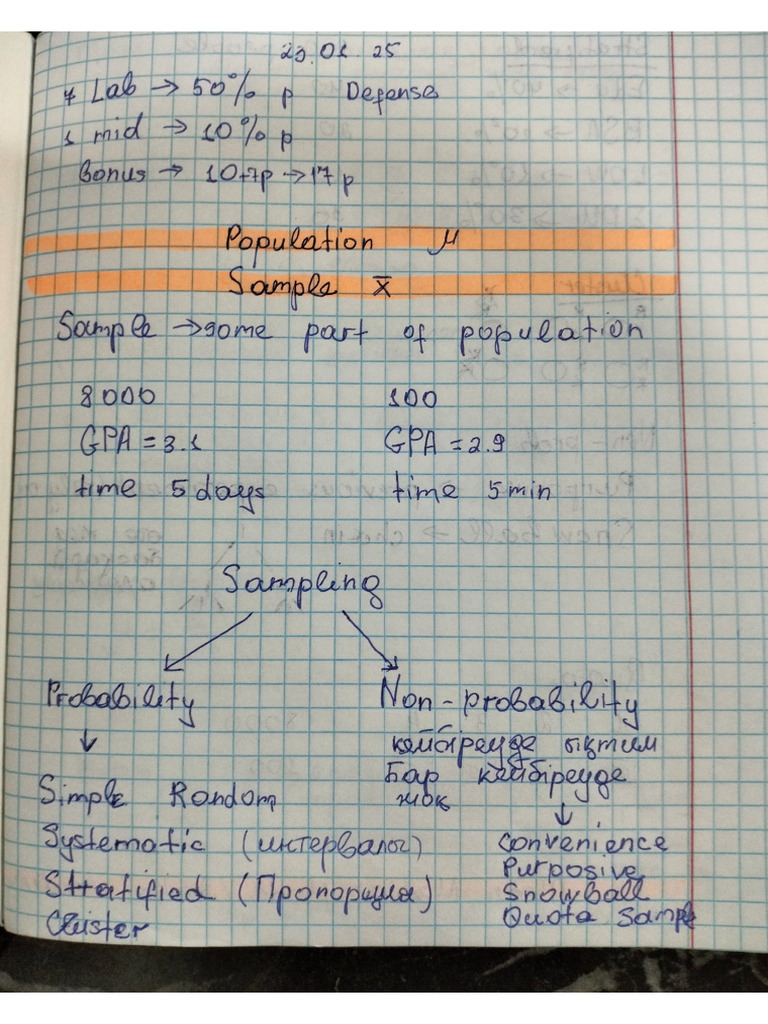 23.01.25
7 Lab → 50% p Defense
1 mid → 10% p
Bonus → 10+7p → 17 p
Population μ
Sample x̄
Sample → some part of population
8000 100
GPA = 3.1 GPA = 2.9
time 5 days time 5 min
Sampling
Probability Non-probability
кейбіреуде ықтим
Бар кейбіреуде
жоқ
Simple Random
Systematic (интервалы) Convenience
Purposive
Stratified (Пропорция) Snowball
Cluster Quota Sample